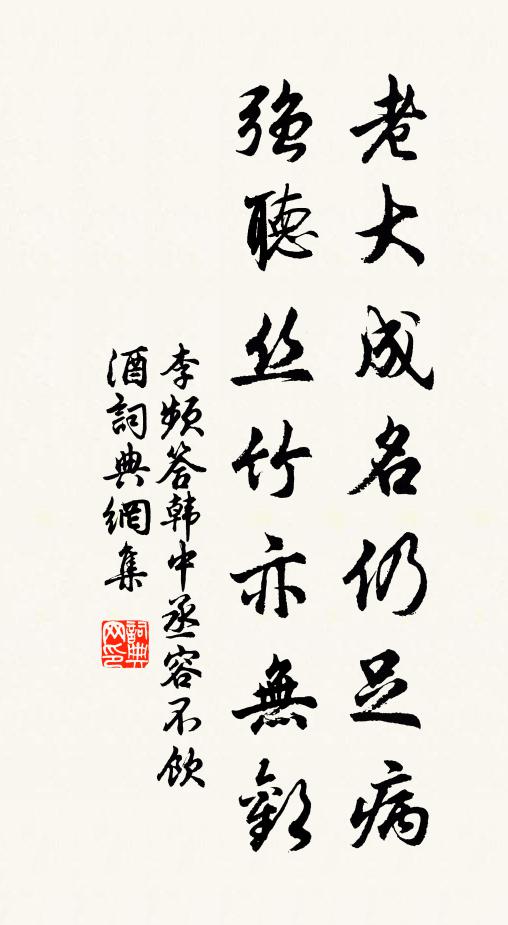 老大成名仍足病
強聽丝竹亦無歡
李频答韩中丞容不飲
酒詞典網集
詞典
网印